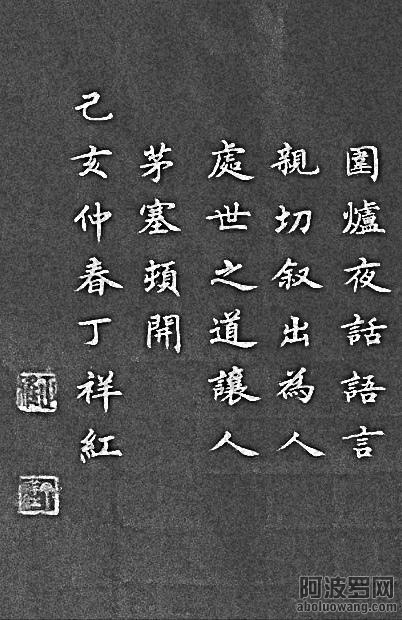 圍爐夜話語言
親切叙出為人
處世之道讓人
茅塞頓開
己亥仲春丁祥紅
阿波罗网
aboluowang.com